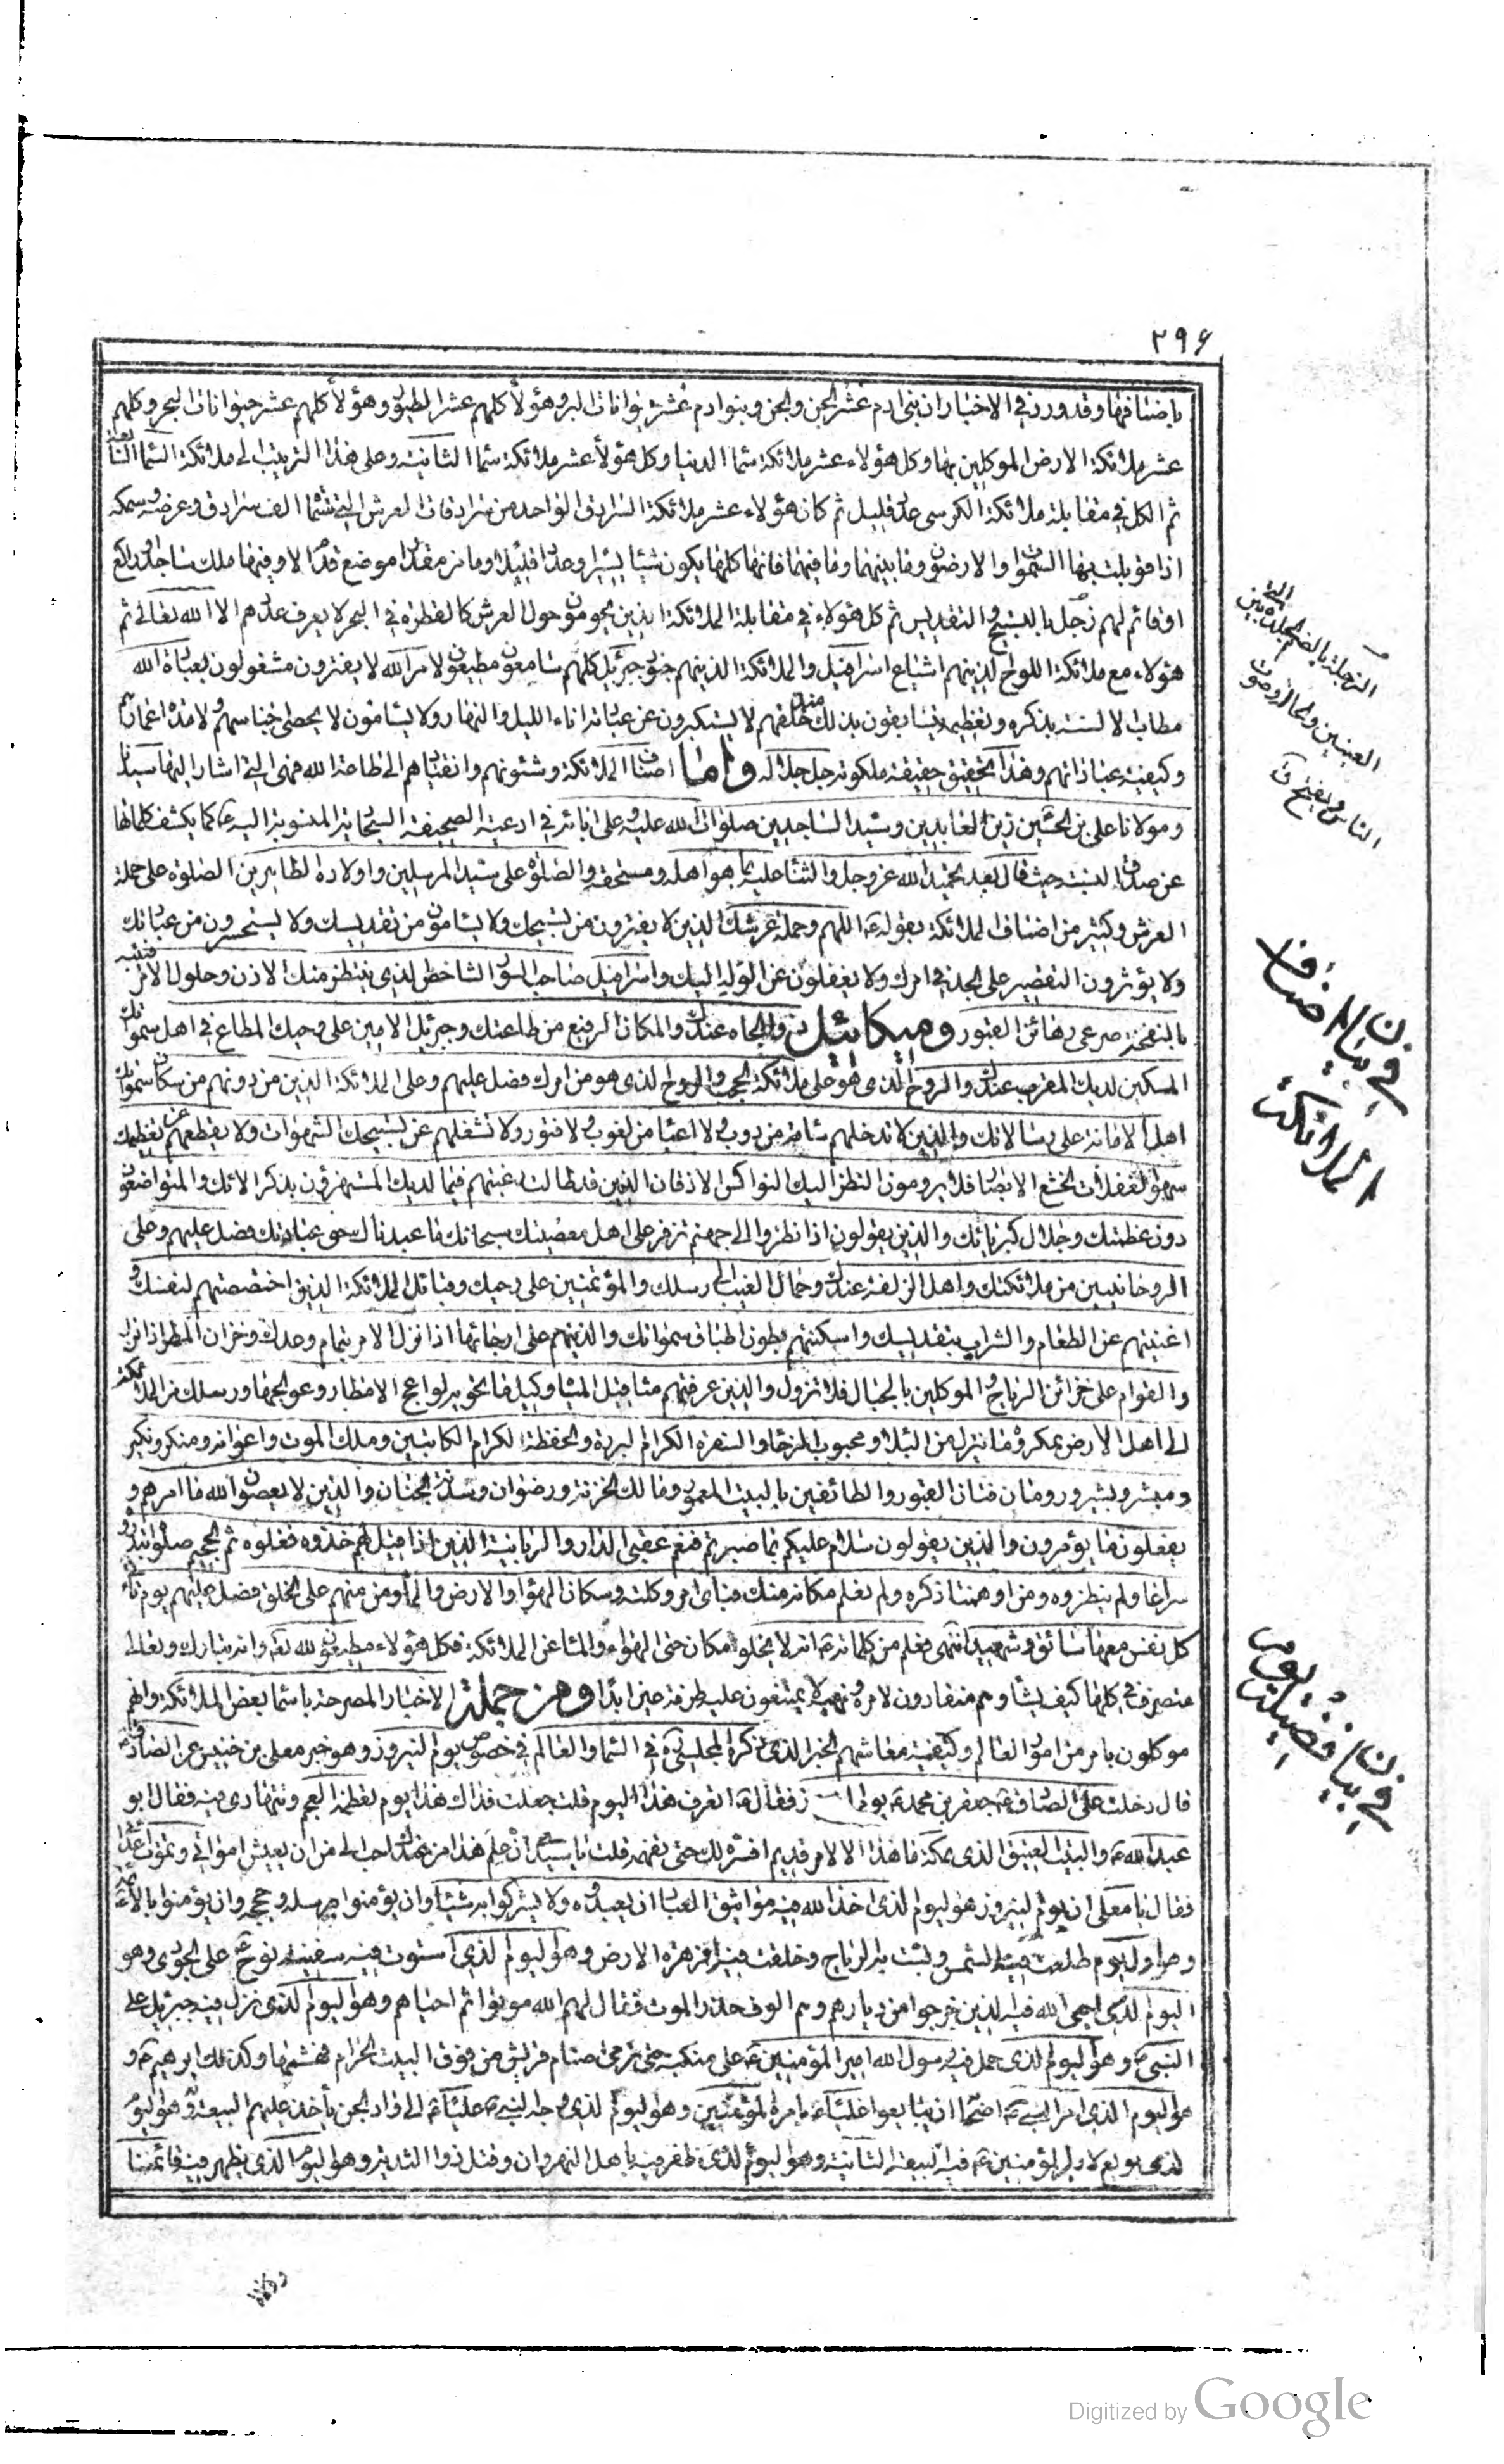 ٢٩۶
باصنافها وقد ورد في الاخبار ان بني ادم عشر الجن والجن وبنو ادم عشر حيوانات البر وهؤلاء كلهم عشر الطيور وهؤلاء كلهم عشر حيوانات البحر وكلهم
عشر ملائكة الارض الموكلين بها وكل هؤلاء عشر ملائكة سماء الدنيا وكل هؤلاء عشر ملائكة سماء الثانية وعلى هذا الترتيب الى ملائكة السماء السابعة
ثم الكل في مقابلة ملائكة الكرسي عدد قليل ثم كان هؤلاء عشر ملائكة السرادق الواحد من سرادقات العرش التي ستمائة الف سرادق وعرضه وسمكه
اذا قوبلت بها السموات والارضون وما بينهما وما فيهما فانها كلها يكون شيئا يسيرا وعددا قليلا وما من مقدار موضع قدم الا وفيها ملك ساجد او راكع
او قائم لهم زجل بالتسبيح والتقديس ثم كل هؤلاء في مقابلة الملائكة الذين يحومون حول العرش كالقطرة في البحر لا يعرف عددهم الا الله تعالى ثم
هؤلاء مع ملائكة اللوح الذين هم اشياع اسرافيل والملائكة الذين هم جنود جبرئيل كلهم سامعون مطيعون لامر الله لا يفترون مشغولون بعبادة الله
رطاب الالسنة بذكره وتعظيمه يتسابقون بذلك منذ خلقهم لا يستكبرون عن عبادته اناء الليل والنهار ولا يسأمون لا يحصى اجناسهم ولا مدة اعمارهم
وكيفية عباداتهم وهذا تحقيق حقيقة ملكوته جل جلاله واما اصناف الملائكة وشئونهم وانقيادهم الى طاعة الله فهي التي اشار اليها سيدنا
ومولانا علي بن الحسين زين العابدين وسيد الساجدين صلوات الله عليه وعلى ابائه في ادعية الصحيفة السجادية المنسوبة اليه ع كما يكشف كلماتها
عن صدق النسبة حيث قال بعد تحميد الله عز وجل والثناء عليه بما هو اهله ومستحقه والصلوة على سيد المرسلين واولاده الطاهرين الصلوة على حملة
العرش وكثير من اصناف الملائكة بقوله ع اللهم وحملة عرشك الذين لا يفترون من تسبيحك ولا يسأمون من تقديسك ولا يستحسرون من عبادتك
ولا يؤثرون التقصير على الجد في امرك ولا يغفلون عن الوله اليك واسرافيل صاحب الصور الشاخص الذي ينتظر منك الاذن وحلول الامر فينبه
بالنفخة صرعى رهائن القبور وميكائيل ذو الجاه عندك والمكان الرفيع من طاعتك وجبرئيل الامين على وحيك المطاع في اهل سمواتك
المكين لديك المقرب عندك والروح الذي هو على ملائكة الحجب والروح الذي هو من امرك فصل عليهم وعلى الملائكة الذين من دونهم من سكان سمواتك
اهل الامانة على رسالاتك والذين لا تدخلهم سأمة من دؤب ولا اعياء من لغوب ولا فتور ولا تشغلهم عن تسبيحك الشهوات ولا يقطعهم عن تعظيمك
سهو الغفلات الخشع الابصار فلا يرومون النظر اليك النواكس الاذقان الذين قد طالت رغبتهم فيما لديك المستهترون بذكر الائك والمتواضعون
دون عظمتك وجلال كبريائك والذين يقولون اذا نظروا الى جهنم تزفر على اهل معصيتك سبحانك ما عبدناك حق عبادتك فصل عليهم وعلى
الروحانيين من ملائكتك واهل الزلفة عندك وحمال الغيب الى رسلك والمؤتمنين على وحيك وقبائل الملائكة الذين اختصصتهم لنفسك و
اغنيتهم عن الطعام والشراب بتقديسك واسكنتهم بطون اطباق سمواتك والذين هم على ارجائها اذا نزل الامر بتمام وعدك وخزان المطر اذا نزل
والقوام على خزائن الرياح والموكلين بالجبال فلا تزول والذين عرفتهم مثاقيل المياه وكيل ما تحويه لواعج الامطار وعوالجها ورسلك من الملائكة
الى اهل الارض بمكروه ما ينزل من البلاء ومحبوب الرخاء والسفرة الكرام البررة والحفظة الكرام الكاتبين وملك الموت واعوانه ومنكر ونكير
ومبشر وبشير ورومان فتان القبور والطائفين بالبيت المعمور ومالك والخزنة ورضوان وسدنة الجنان والذين لا يعصون الله ما امرهم و
يفعلون ما يؤمرون والذين يقولون سلام عليكم بما صبرتم فنعم عقبى الدار والزبانية الذين اذا قيل لهم خذوه فغلوه ثم الجحيم صلوه ابتدروه
سراعا ولم ينظروه ومن اوهمنا ذكره ولم نعلم مكانه منك وباي امر وكلته وسكان الهواء والارض والماء ومن منهم على الخلق فصل عليهم يوم تأتي
كل نفس معها سائق وشهيد انتهى فعلم من كلماته ع انه لا يخلو مكان حتى الهواء والماء عن الملائكة فكل هؤلاء مطيعون لله تعـ وانه تبارك وتعالى
متصرف في كلها كيف يشاء وهم منقادون لامره ونهيه لا يمتنعون عليه طرفة عين ابدا ومن جملة الاخبار المصرحة باسماء بعض الملائكة وانهم
موكلون بامر من امور العالم وكيفية معاشهم الخبر الذي ذكره المجلسي ره في السماء والعالم في خصوص يوم النيروز وهو خبر معلى بن خنيس عن الصادق ع
قال دخلت على الصادق ع جعفر بن محمد ع يوم النيروز فقال ع اتعرف هذا اليوم قلت جعلت فداك هذا يوم تعظمه العجم وتتهادى فيه فقال ابو
عبد الله ع والبيت العتيق الذي بمكة ما هذا الا لامر قديم افسره لك حتى تفهمه قلت يا سيدي ان علم هذا من عندك احب الي من ان يعيش امواتي وتموت اعدائي
فقال يا معلى ان يوم النيروز هو اليوم الذي اخذ الله فيه مواثيق العباد ان يعبدوه ولا يشركوا به شيئا وان يؤمنوا برسله وحججه وان يؤمنوا بالائمة
وهو اول يوم طلعت فيه الشمس وهبت به الرياح وخلقت فيه زهرة الارض وهو اليوم الذي استوت فيه سفينة نوح ع على الجودي وهو
اليوم الذي احيى الله فيه الذين خرجوا من ديارهم وهم الوف حذر الموت فقال لهم الله موتوا ثم احياهم وهو اليوم الذي نزل فيه جبرئيل على
النبي ص وهو اليوم الذي حمل فيه رسول الله امير المؤمنين ع على منكبه حتى رمى اصنام قريش من فوق البيت الحرام فهشمها وكذلك ابرهيم ع و
هو اليوم الذي امر النبي ص اصحابه ان يبايعوا عليا ع بامرة المؤمنين وهو اليوم الذي وجه النبي ص عليا ع الى واد الجن يأخذ عليهم البيعة وهو اليوم
الذي بويع لامير المؤمنين ع فيه البيعة الثانية وهو اليوم الذي ظفر فيه باهل النهروان وقتل ذو الثدية وهو اليوم الذي يظهر فيه قائمنا
الزجلة بالضم الجلدة التي بين
العينين والجماعة او صوت
الناس ويفتح ق
في بيان اصناف
الملائكة
في بيان فضيلة يوم